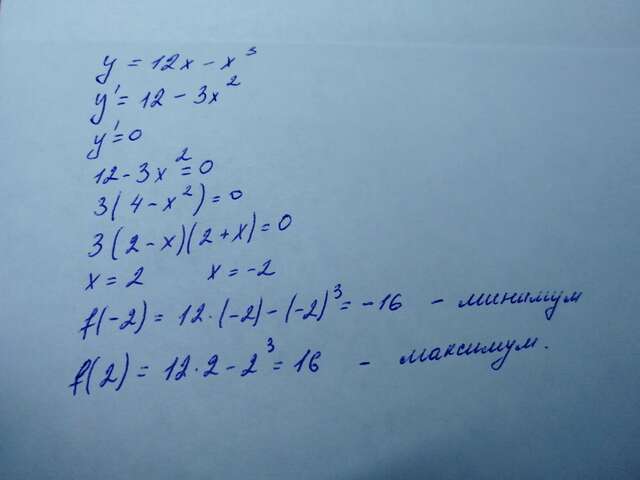 y = 12x - x³
y' = 12 - 3x²
y' = 0
12 - 3x² = 0
3(4 - x²) = 0
3(2 - x)(2 + x) = 0
x = 2 x = -2
f(-2) = 12·(-2) - (-2)³ = -16 - минимум
f(2) = 12·2 - 2³ = 16 - максимум.